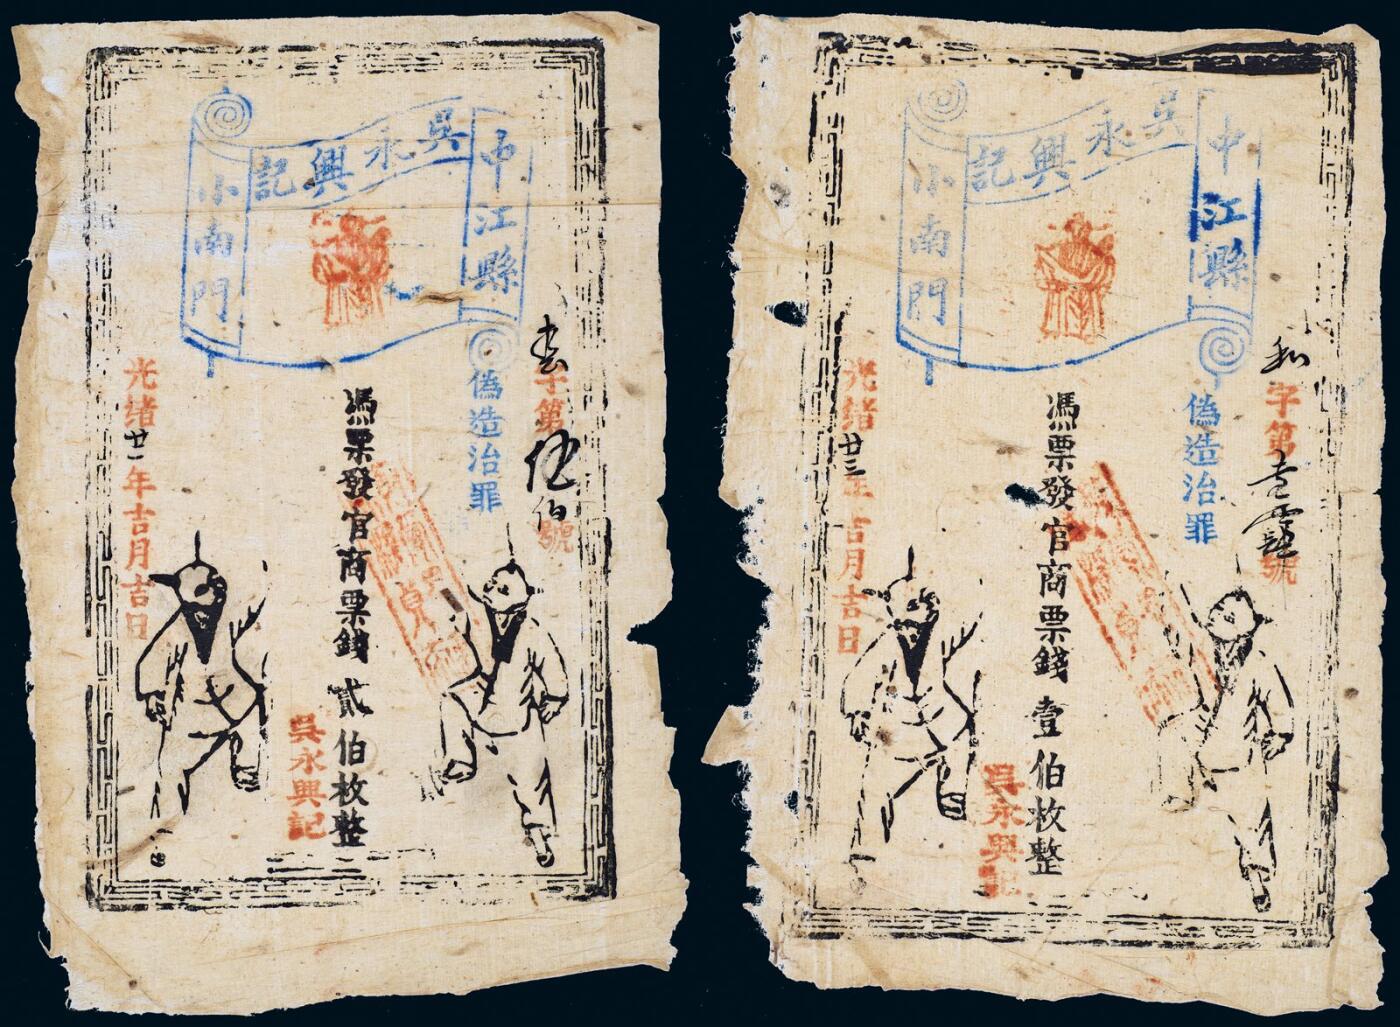 吳永興記
中江縣
小南門
偽造治罪
字第伍伯號
憑票發官商票錢貳伯枚整
吳永興記
光绪廿一年吉月吉日
吳永興記
中江縣
小南門
偽造治罪
和字第壹號
憑票發官商票錢壹伯枚整
吳永興記
光绪廿三年吉月吉日